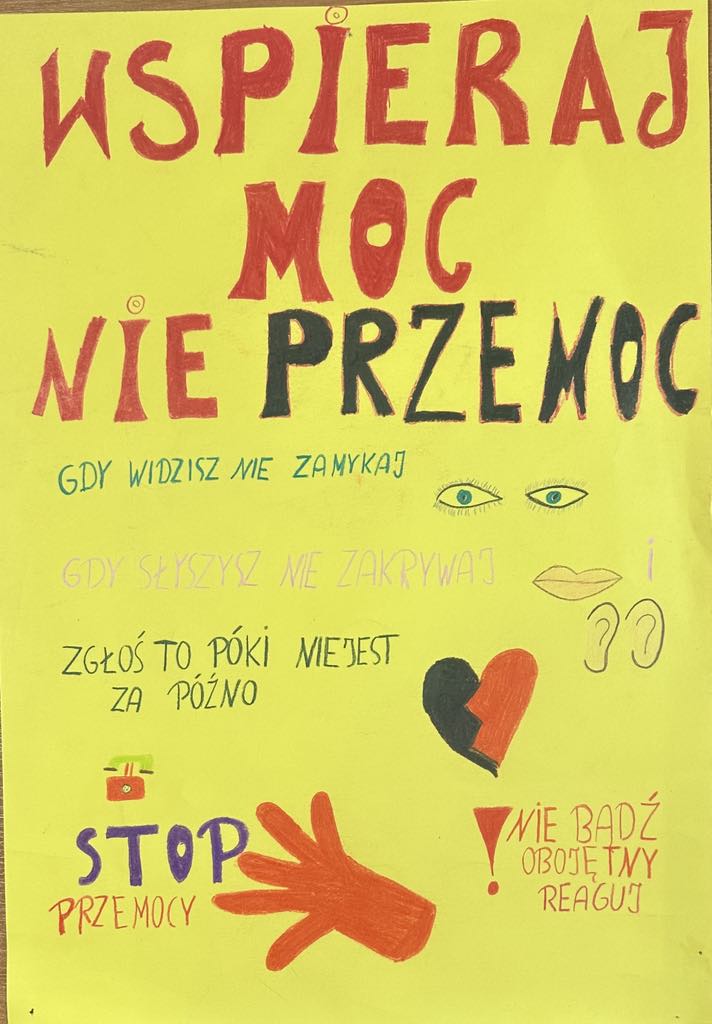 WSPIERAJ
MOC
NIE PRZEMOC
GDY WIDZISZ NIE ZAMYKAJ
GDY SŁYSZYSZ NIE ZAKRYWAJ
i
ZGŁOŚ TO PÓKI NIE JEST
ZA PÓŹNO
STOP
PRZEMOCY
! NIE BĄDŹ
OBOJĘTNY
REAGUJ